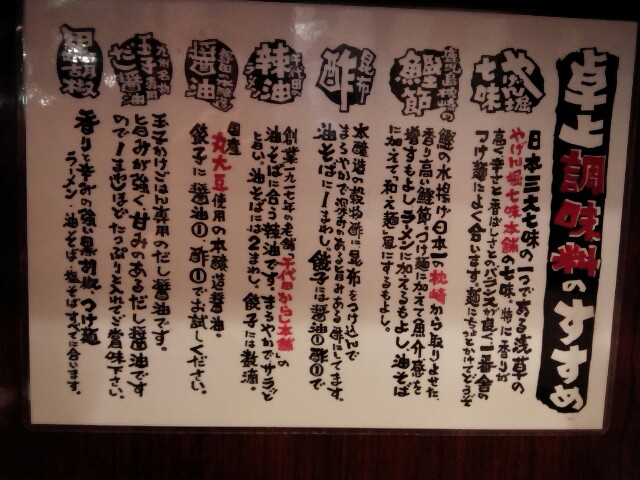 卓上調味料のすすめ
やげん堀
七味
日本三大七味の一つである浅草の
やげん堀七味本舗の七味。特に香りが
高く辛さと香ばしさとのバランスが良く一番舎の
つけ麺によく合います。麺にちょっとかけてどうぞ
鹿児島枕崎の
鰹節
鰹の水揚げ日本一の枕崎から取りよせた、
香り高い鰹節。つけ麺に加えて魚介感を
増すもよしラーメンに加えるもよし、油そば
に加えて"和え麺"風にするもよし。
昆布
酢
本醸造の穀物酢に昆布をつけ込んで
まろやかで深みのある旨みある酢にしてます。
油そばに1まわし、餃子には醤油①酢①で
千代田の
辣油
創業一九一七年の老舗"千代田からし本舗"の
油そばに合う辣油です。まろやかでサラッと
旨い。油そばには2まわし、餃子には数滴。
醤油
国産丸大豆使用の本醸造醤油。
餃子に醤油①、酢①でお試しください。
九州名物
玉子専用
だし醤油
玉子かけごはん専用のだし醤油です。
旨みが強く、甘みのあるだし醤油です
ので1まわしほどたっぷりと入れてご賞味下さい。
黒胡椒
香りと辛みの強い黒胡椒、つけ麺
ラーメン・油そば・塩そばすべてに合います。